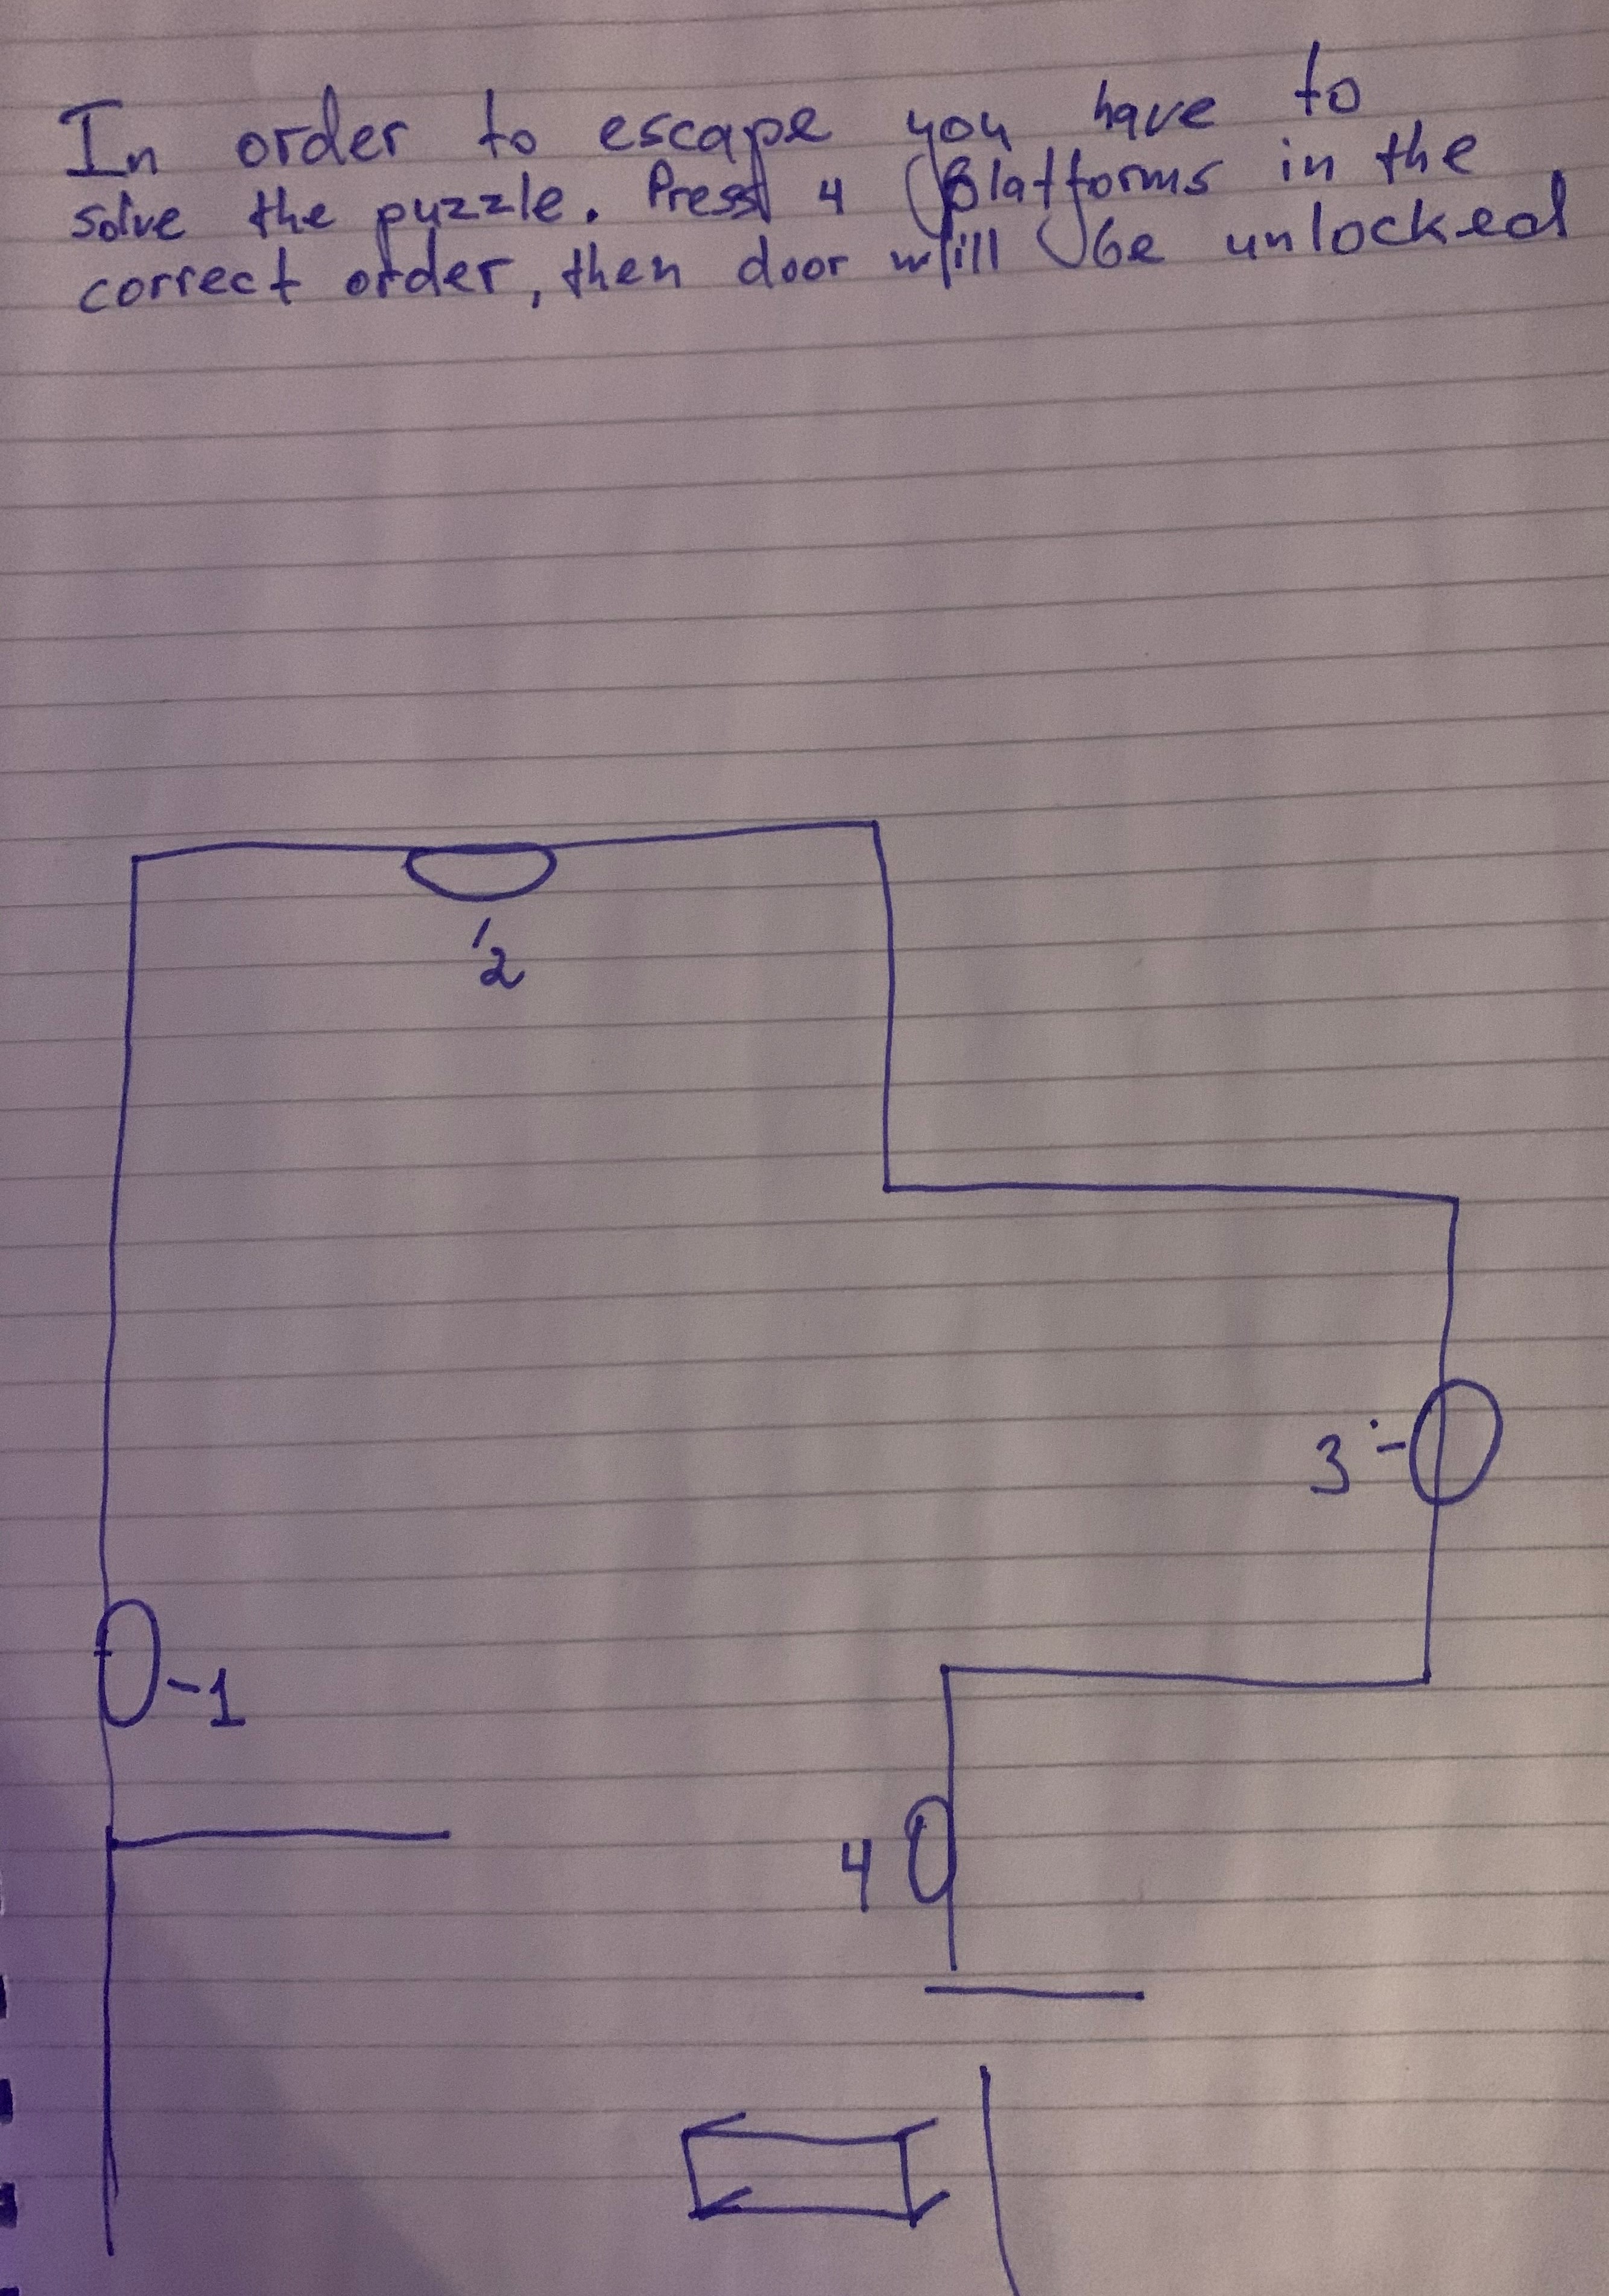 In order to escape you have to
solve the puzzle. Press 4 platforms in the
correct order, then door will be unlocked
2
3
1
4